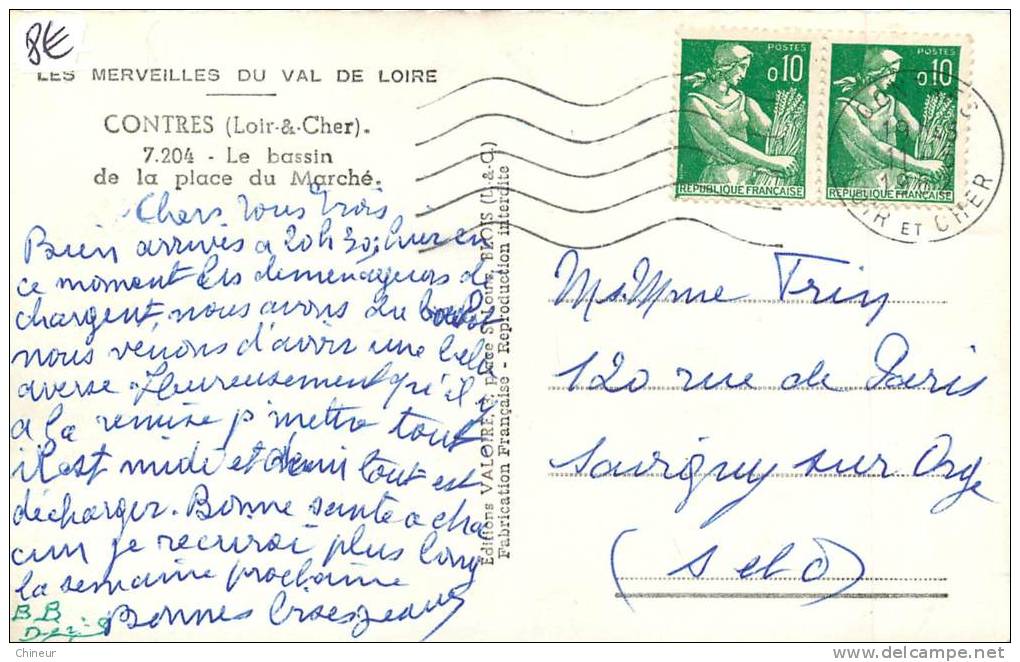 8€
LES MERVEILLES DU VAL DE LOIRE
CONTRES (Loir-&-Cher).
7.204 - Le bassin
de la place du Marché.
Chers Tous Trois
Bien arrivés a 20h30, hier en
ce moment les demenageurs de
chargent, nous avons du boulot
nous venons d'avoir une belle
averse Heureusement qu'il y
a la remise p' mettre tout
il est midi et demi tout est
décharger. Bonne sante a cha
cun je recrirai plus long
la semaine prochaine
Bonnes
B B
Editions VALOIRE, place St-Louis, BLOIS (L-&-C.)
Fabrication Française - Reproduction interdite
POSTES
0,10
REPUBLIQUE FRANÇAISE
POSTES
0,10
REPUBLIQUE FRANÇAISE
LOIR ET CHER
Mr Mme Trin
120 rue de Paris
Savigny sur Orge
(S et O)
delcampe.net